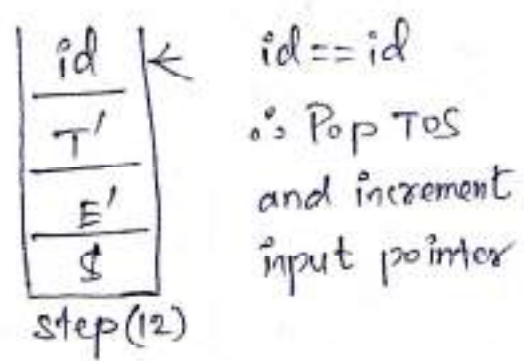 id
T'
E'
$
step(12)
id == id
∴ Pop TOS
and increment
input pointer